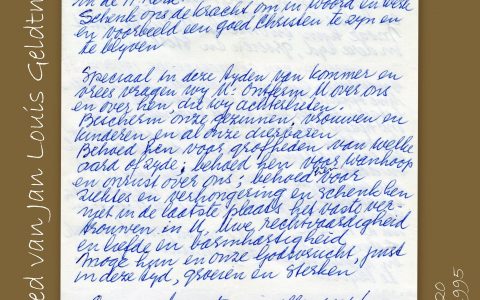 in de
Schenk ons de kracht om in woord en werk
een voorbeeld een goed Christen te zijn en
te blijven
Speciaal in deze tijden van kommer en
vrees vragen wij U: Ontferm U over ons
en over hen, die wij achterlieten.
Bescherm onze gezinnen, vrouwen en
kinderen en al onze dierbaren
Behoed hen voor grofheden van welke
aard of zijde; behoed hen voor wanhoop
en onrust over ons; behoed voor
ziektes en verhongering en schenk hen
niet in de laatste plaats het vaste ver-
trouwen in U, Uwe rechtvaardigheid
en liefde en barmhartigheid
Moge hun en onze Godsvrucht, juist
in deze tijd, groeien en sterken
ed van Jan Louis Geldtm
20
995